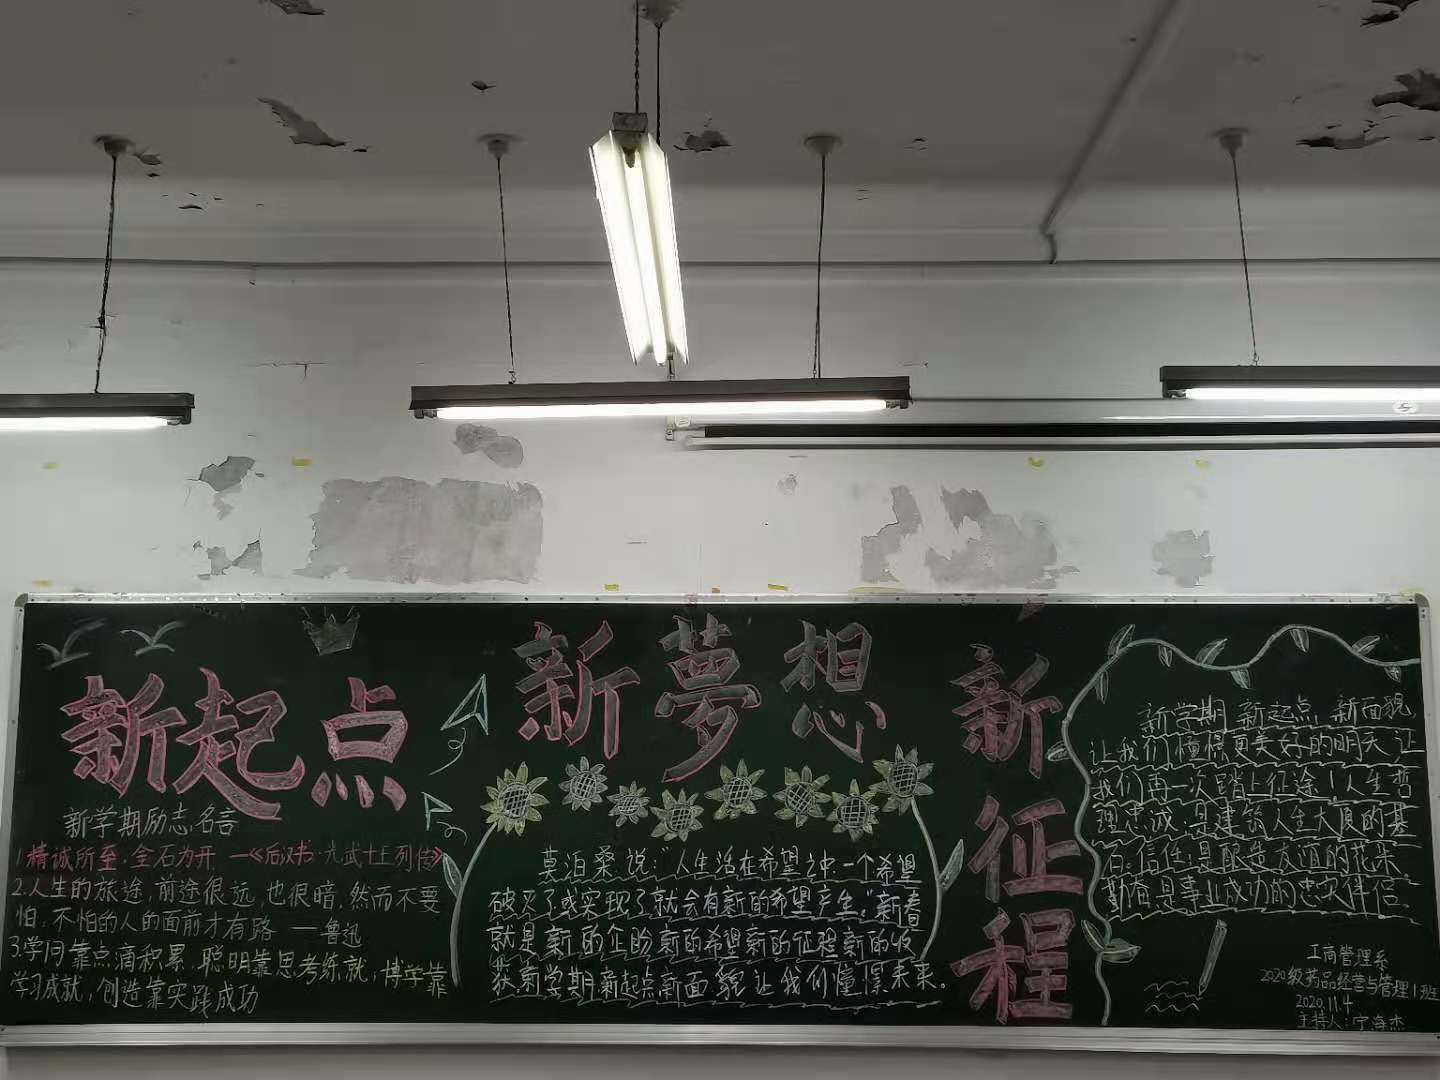 新起点
新学期励志名言
1.精诚所至.金石为开 —《后汉书·光武十王列传》
2.人生的旅途,前途很远,也很暗,然而不要
怕,不怕的人的面前才有路 ——鲁迅
3.学问靠点滴积累,聪明靠思考练就,博学靠
学习成就,创造靠实践成功
新夢想
莫泊桑说:"人生活在希望之中.一个希望
破灭了或实现了就会有新的希望产生."新春
就是新的企盼新的希望新的征程新的收
获新学期新起点新面貌让我们憧憬未来。
新征程
新学期,新起点,新面貌,
让我们憧憬更美好的明天让
我们再一次踏上征途!人生哲
理忠诚:是建筑人生大厦的基
石:信任:是酿造友谊的花朵.
勤奋是事业成功的忠实伴侣.
工商管理系
2020级药品经营与管理1班
2020.11.4
主持人:宁海杰